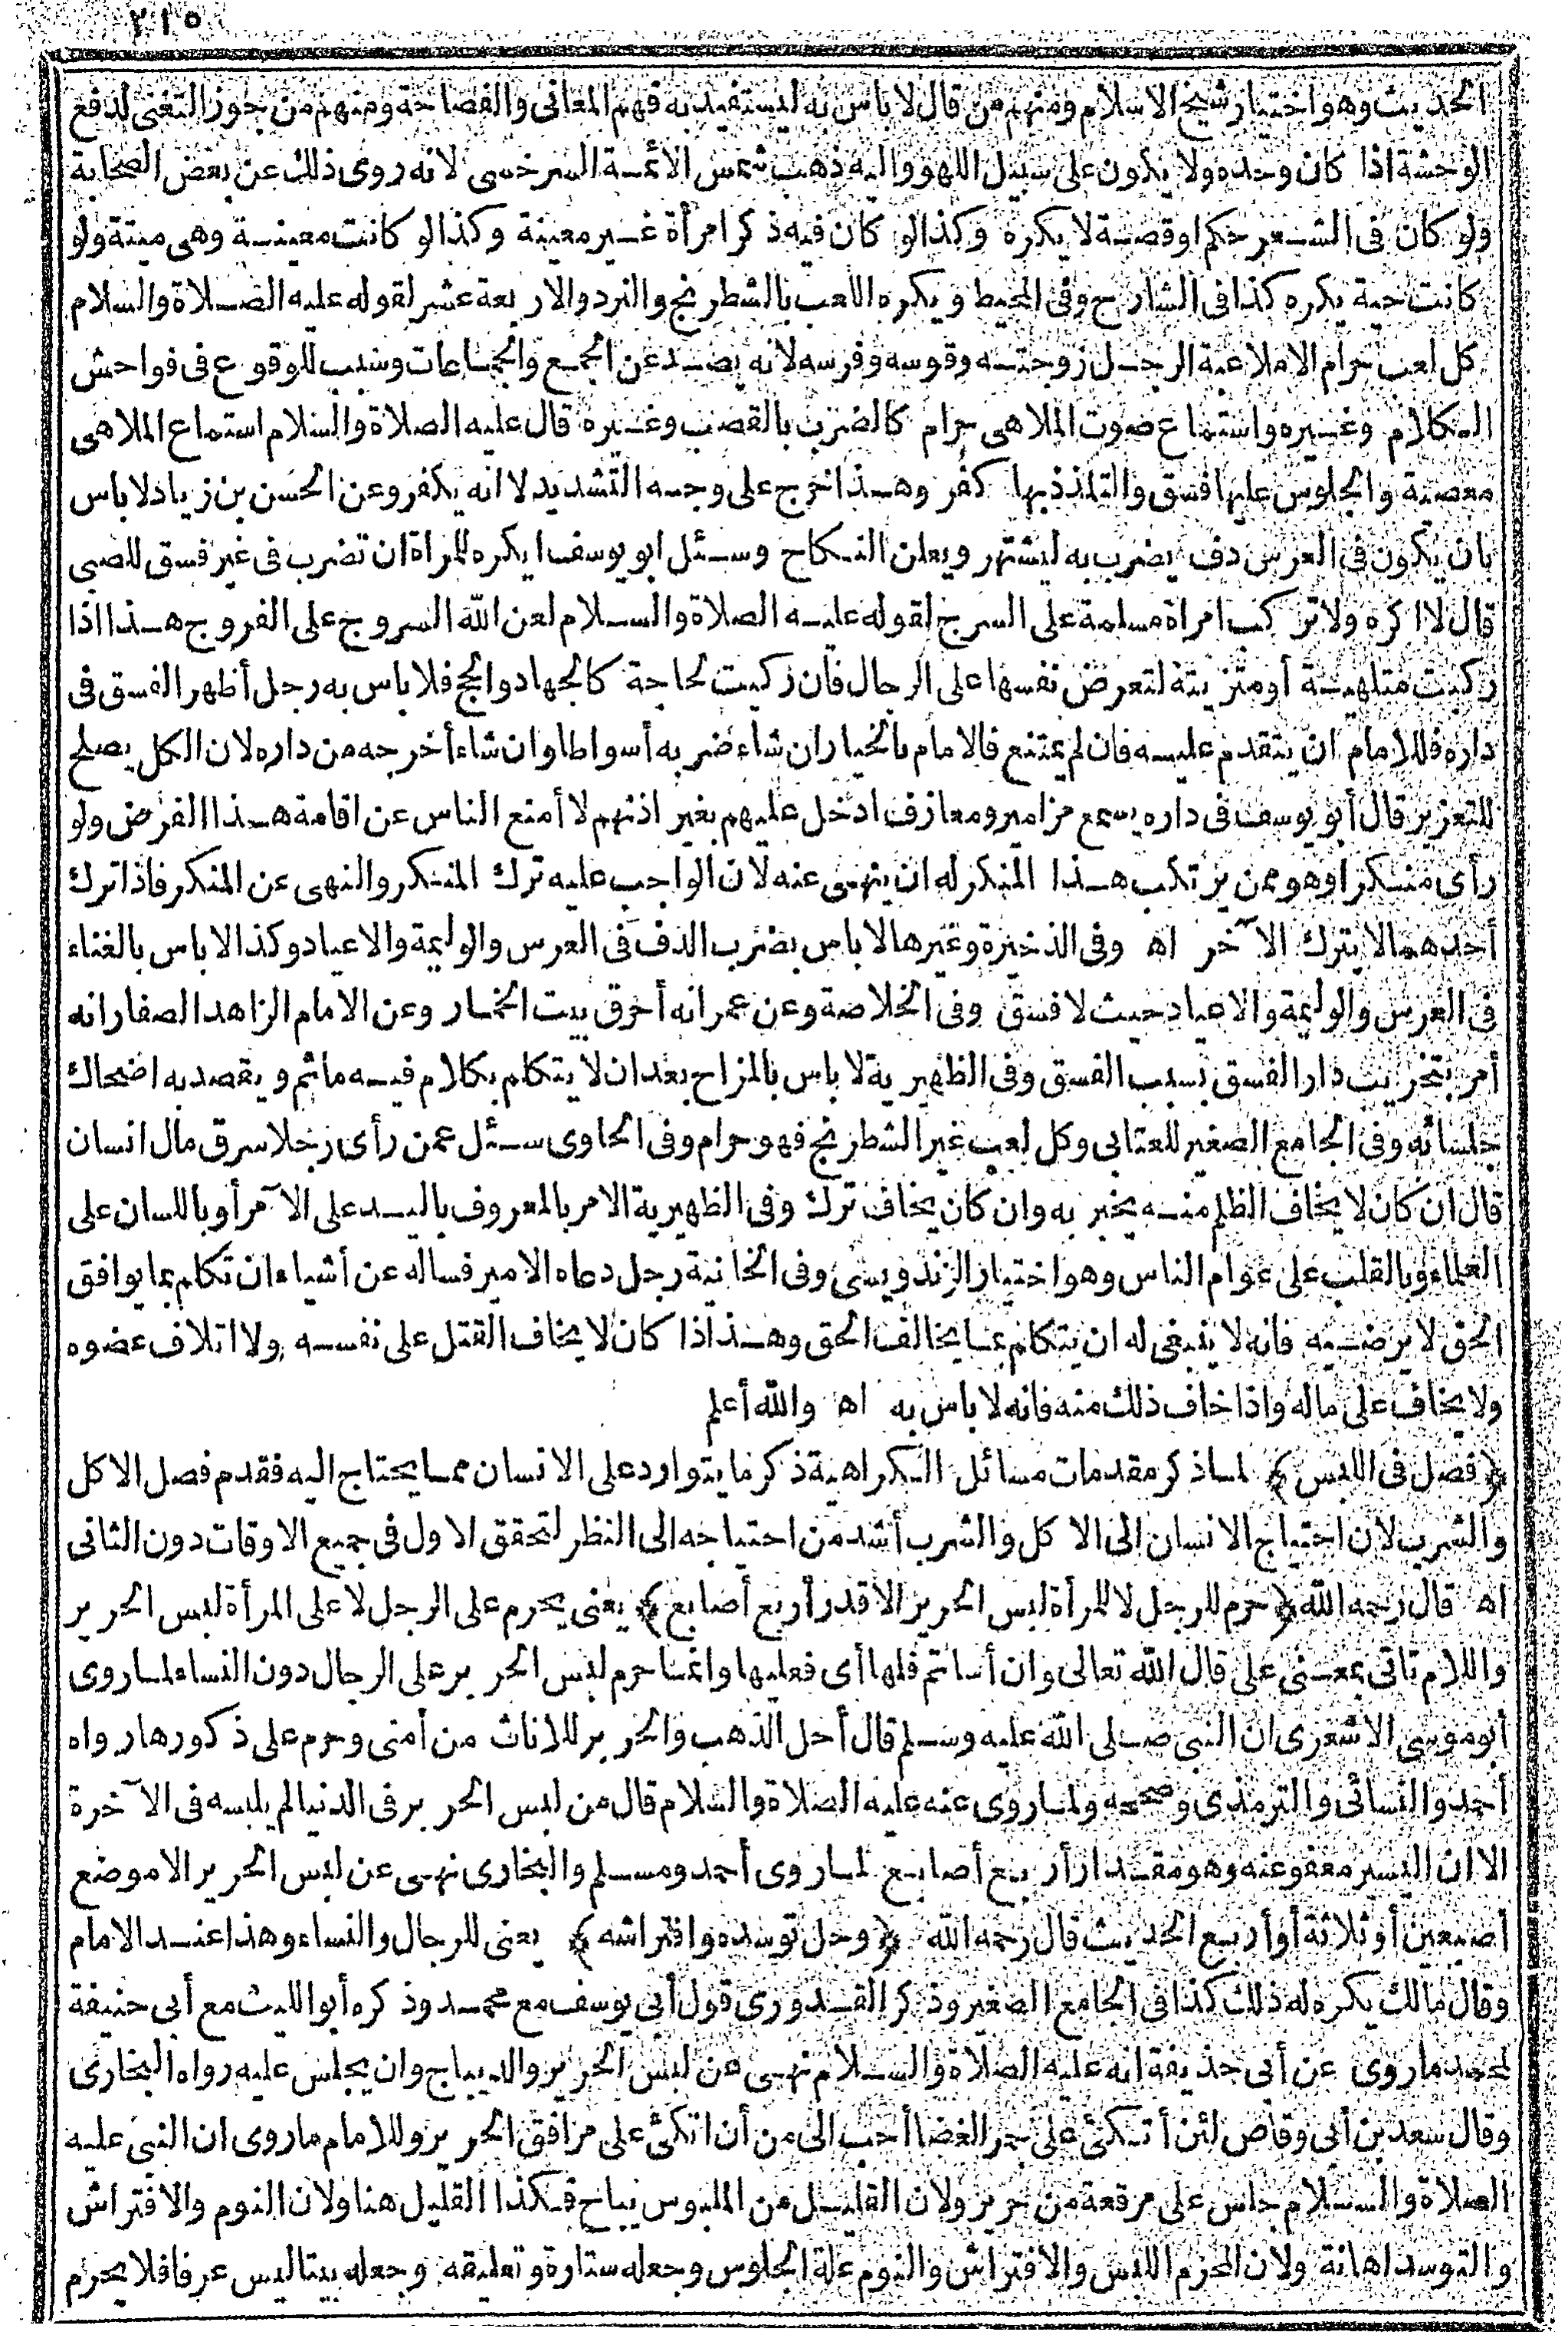 ٢١٥
الحديث وهو اختيار شيخ الاسلام ومنهم من قال لا باس به ليستفيد به فهم المعانى والفصاحة ومنهم من جوز التغنى لدفع
الوحشة اذا كان وحده ولا يكون على سبيل اللهو واليه ذهب شمس الأئمة السرخسى لانه روى ذلك عن بعض الصحابة
ولو كان فى الشعر حكم او قصة لا يكره وكذا لو كان فيه ذكر امرأة غير معينة وكذا لو كانت معينة وهى ميتة ولو
كانت حية يكره كذا فى الشارح وفى المحيط ويكره اللعب بالشطرنج والنرد والاربعة عشر لقوله عليه الصلاة والسلام
كل لعب حرام الا ملاعبة الرجل زوجته وقوسه وفرسه لانه يصد عن الجمع والجماعات وسبب للوقوع فى فواحش
الكلام وغيره واستماع صوت الملاهى حرام كالضرب بالقصب وغيره قال عليه الصلاة والسلام استماع الملاهى
معصية والجلوس عليها فسق والتلذذ بها كفر وهذا خرج على وجه التشديد لا انه يكفر وعن الحسن بن زياد لا باس
بان يكون فى العرس دف يضرب به ليشتهر ويعلن النكاح وسئل ابو يوسف ايكره للمراة ان تضرب فى غير فسق للصبى
قال لا اكره ولا تركب امراة مسلمة على السرج لقوله عليه الصلاة والسلام لعن الله السروج على الفروج هذا اذا
ركبت متلهية أو متزينة لتعرض نفسها على الرجال فان ركبت لحاجة كالجهاد والحج فلا باس به رجل أظهر الفسق فى
داره فللامام ان يتقدم عليه فان لم يمتنع فالامام بالخيار ان شاء ضربه أسواطا وان شاء أخرجه من داره لان الكل يصلح
للتعزير قال أبو يوسف فى داره يسمع مزامير ومعازف ادخل عليهم بغير اذنهم لا أمنع الناس عن اقامة هذا الفرض ولو
رأى منكرا وهو ممن يرتكب هذا المنكر له ان ينهى عنه لان الواجب عليه ترك المنكر والنهى عن المنكر فاذا ترك
أحدهما لا يترك الآخر اه وفى الذخيرة وغيرها لا باس بضرب الدف فى العرس والوليمة والاعياد وكذا لا باس بالغناء
فى العرس والوليمة والاعياد حيث لا فسق وفى الخلاصة وعن عمر انه أحرق بيت الخمار وعن الامام الزاهد الصفار انه
أمر بتخريب دار الفسق بسبب الفسق وفى الظهيرية لا باس بالمزاح بعد ان لا يتكلم بكلام فيه مأثم ويقصد به اضحاك
جلسائه وفى الجامع الصغير للعتابى وكل لعب غير الشطرنج فهو حرام وفى الحاوى سئل عمن رأى رجلا سرق مال انسان
قال ان كان لا يخاف الظلم منه يخبر به وان كان يخاف ترك وفى الظهيرية الامر بالمعروف باليد على الآمر أو باللسان على
العلماء وبالقلب على عوام الناس وهو اختيار الزندويسى وفى الخانية رجل دعاه الامير فساله عن أشياء ان تكلم بما يوافق
الحق لا يرضيه فانه لا ينبغى له ان يتكلم بما يخالف الحق وهذا اذا كان لا يخاف القتل على نفسه ولا اتلاف عضوه
ولا يخاف على ماله واذا خاف ذلك منه فانه لا باس به اه والله أعلم
﴿فصل فى اللبس﴾ لما ذكر مقدمات مسائل الكراهية ذكر ما يتوارد على الانسان مما يحتاج اليه فقدم فصل الاكل
والشرب لان احتياج الانسان الى الاكل والشرب أشد من احتياجه الى النظر لتحقق الاول فى جميع الاوقات دون الثانى
اه قال رحمه الله ﴿حرم للرجل لا للمرأة لبس الحرير الا قدر أربع أصابع﴾ يعنى يحرم على الرجل لا على المرأة لبس الحرير
واللام تاتى بمعنى على قال الله تعالى وان أسأتم فلها أى فعليها وانما حرم لبس الحرير على الرجال دون النساء لما روى
أبو موسى الاشعرى ان النبى صلى الله عليه وسلم قال أحل الذهب والحرير للاناث من أمتى وحرم على ذكورها رواه
أحمد والنسائى والترمذى وصححه ولما روى عنه عليه الصلاة والسلام قال من لبس الحرير فى الدنيا لم يلبسه فى الآخرة
الا ان اليسير معفو عنه وهو مقدار أربع أصابع لما روى أحمد ومسلم والبخارى نهى عن لبس الحرير الا موضع
أصبعين أو ثلاثة أو أربع الحديث قال رحمه الله ﴿وحل توسده وافتراشه﴾ يعنى للرجال والنساء وهذا عند الامام
وقال مالك يكره له ذلك كذا فى الجامع الصغير وذكر القدورى قول أبى يوسف مع محمد وذكره أبو الليث مع أبى حنيفة
لمحمد ما روى عن أبى حذيفة انه عليه الصلاة والسلام نهى عن لبس الحرير والديباج وان يجلس عليه رواه البخارى
وقال سعد بن أبى وقاص لئن أتكئ على جمر الغضا أحب الى من أن اتكئ على مرافق الحرير وللامام ما روى ان النبى عليه
الصلاة والسلام جلس على مرقعة من حرير ولان القليل من الملبوس يباح فكذا القليل هنا ولان النوم والافتراش
والتوسد اهانة ولان المحرم اللبس والافتراش والنوم علة الجلوس وجعله ستارة وتعليقه وجعله بيتا ليس عرفا فلا يحرم